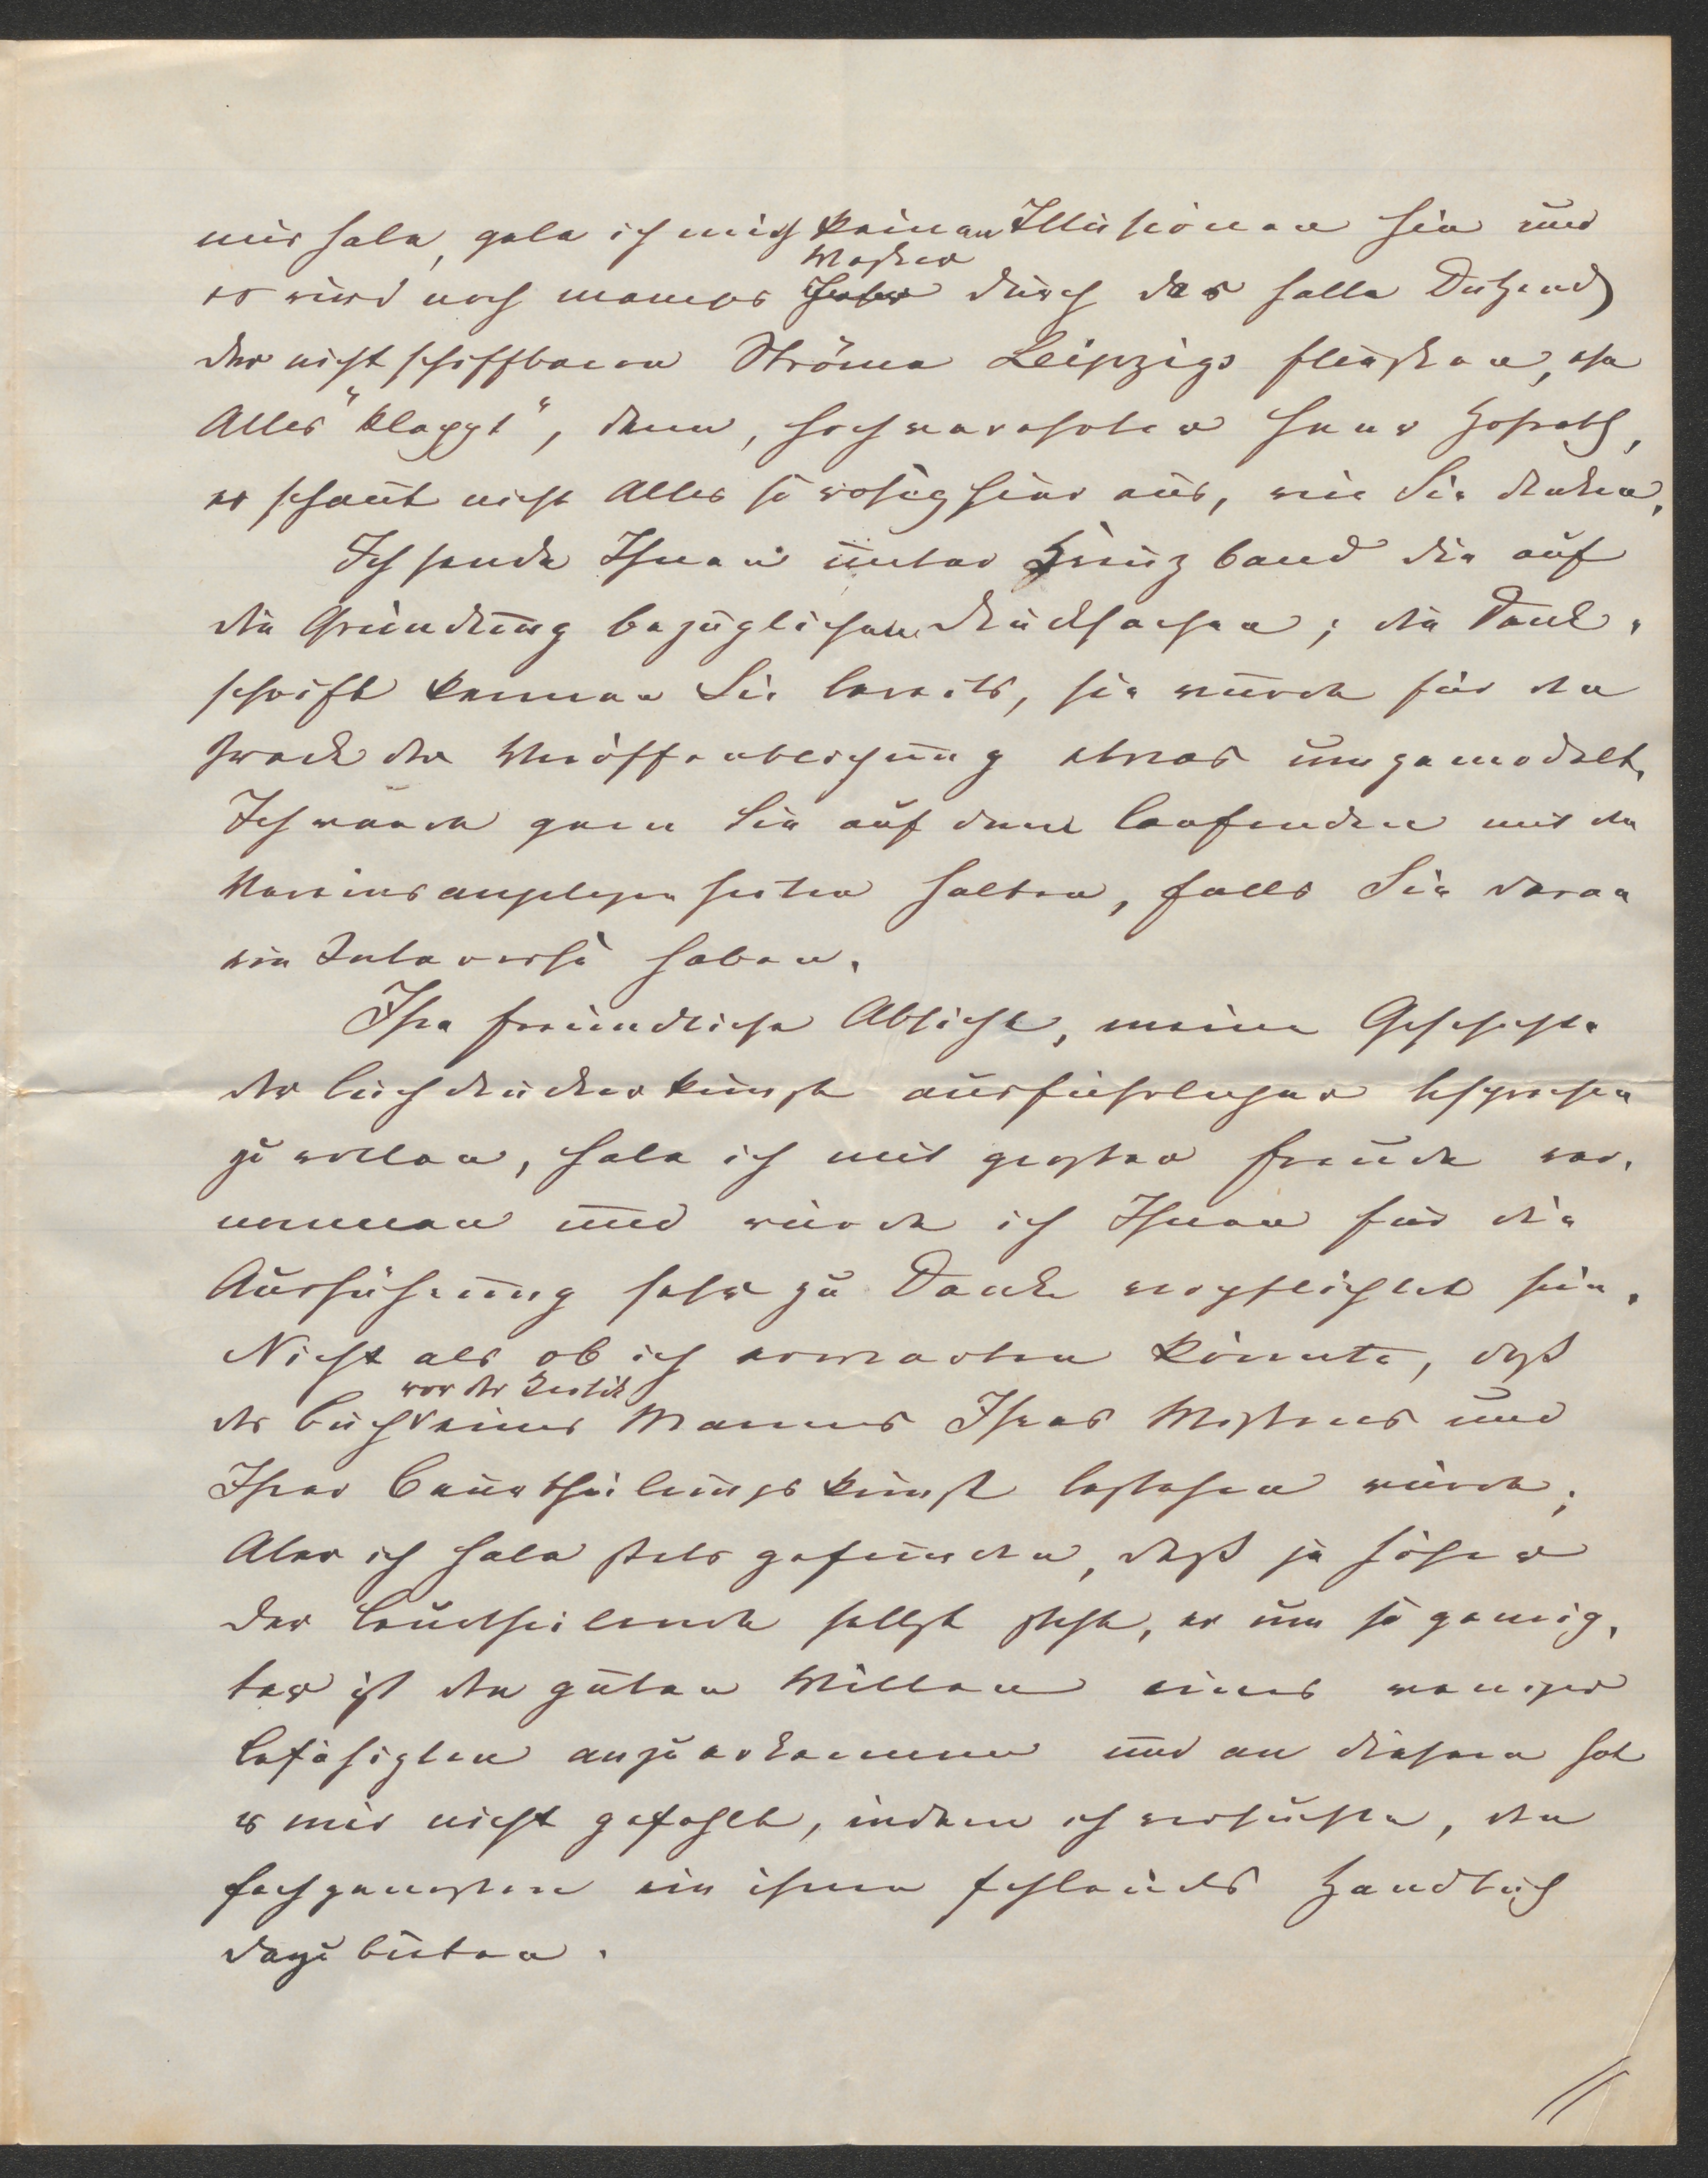 mir habe, gebe ich mich keinen Illusionen hin und
Wasser
es wird noch manches durch das halbe Dutzend
der nicht schiffbaren Ströme Leipzigs fließen, ehe
Alles "klappt", denn, hochverehrter Herr Hofrath,
es schaut nicht Alles so rosig hier aus, wie Sie denken.
Ich sende Ihnen unter Kreuzband die auf
die Gründung bezüglichen Drucksachen; die Denk-
schrift kennen Sie bereits, sie wurde für den
Zweck der Veröffentlichung etwas umgemodelt.
Ich werde gern Sie auf dem Laufenden mit den
Vereinsangelegenheiten halten, falls Sie daran
ein Interesse haben.
Ihre freundliche Absicht, meine Geschichte
der Buchdruckerkunst ausführlicher besprechen
zu wollen, habe ich mit großer Freude ver-
nommen und würde ich Ihnen für die
Ausführung sehr zu Danke verpflichtet sein.
Nicht als ob ich erwarten könnte, daß
vor der Kritik
das Buch eines Mannes Ihres Wissens und
Ihrer Beurtheilungskunst bestehen würde;
Aber ich habe stets gefunden, daß je höher
der Beurtheilende selbst steht, er um so geneig-
ter ist den guten Willen eines weniger
Befähigten anzuerkennen und an diesem hat
es mir nicht gefehlt, indem ich versuchte, den
Fachgenossen ein ihnen fehlendes Handbuch
dazubieten.